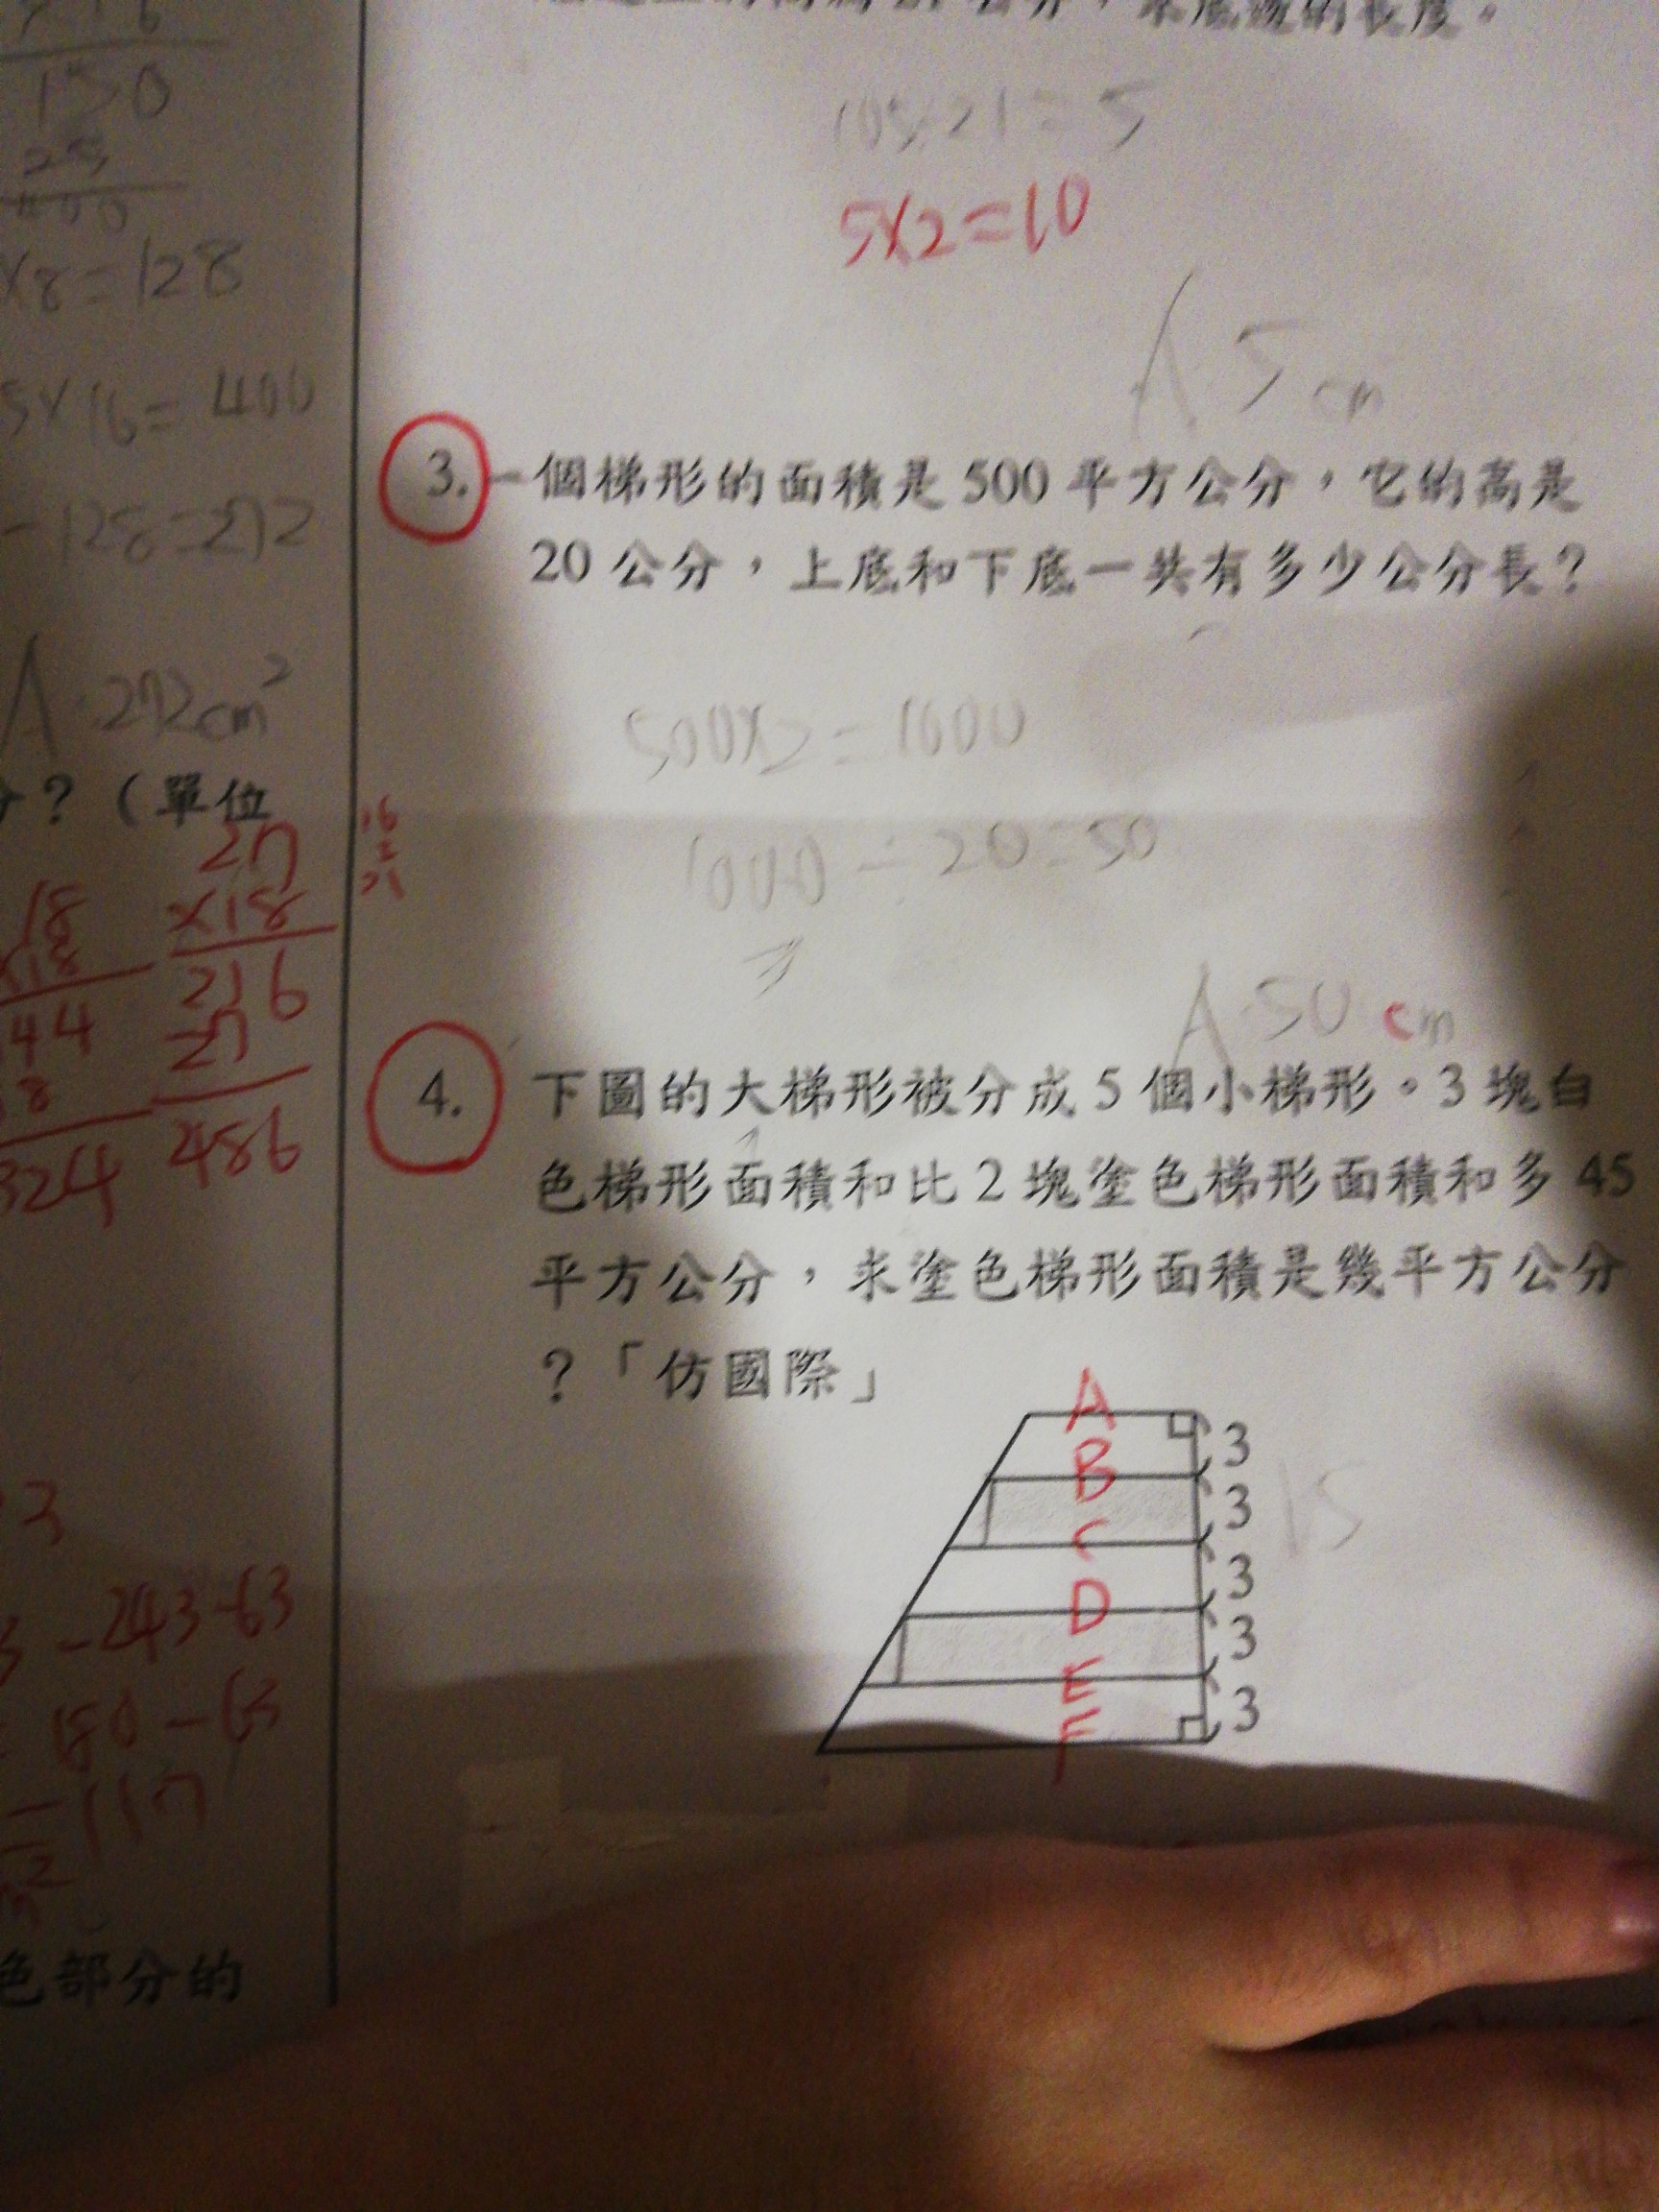 150
400
×8=128
5×16=400
-128=272
A.272cm²
?(單位
27
×18
216
27
486
18
×18
144
18
324
3
-243-63
180-63
=117
色部分的
105÷21=5
5×2=10
A 5cm
3. 一個梯形的面積是500平方公分,它的高是
20公分,上底和下底一共有多少公分長?
500×2=1000
1000÷20=50
A.50cm
4. 下圖的大梯形被分成5個小梯形。3塊白
色梯形面積和比2塊塗色梯形面積和多45
平方公分,求塗色梯形面積是幾平方公分
?「仿國際」
A
3
B
3
15
C
3
D
3
E
3
F